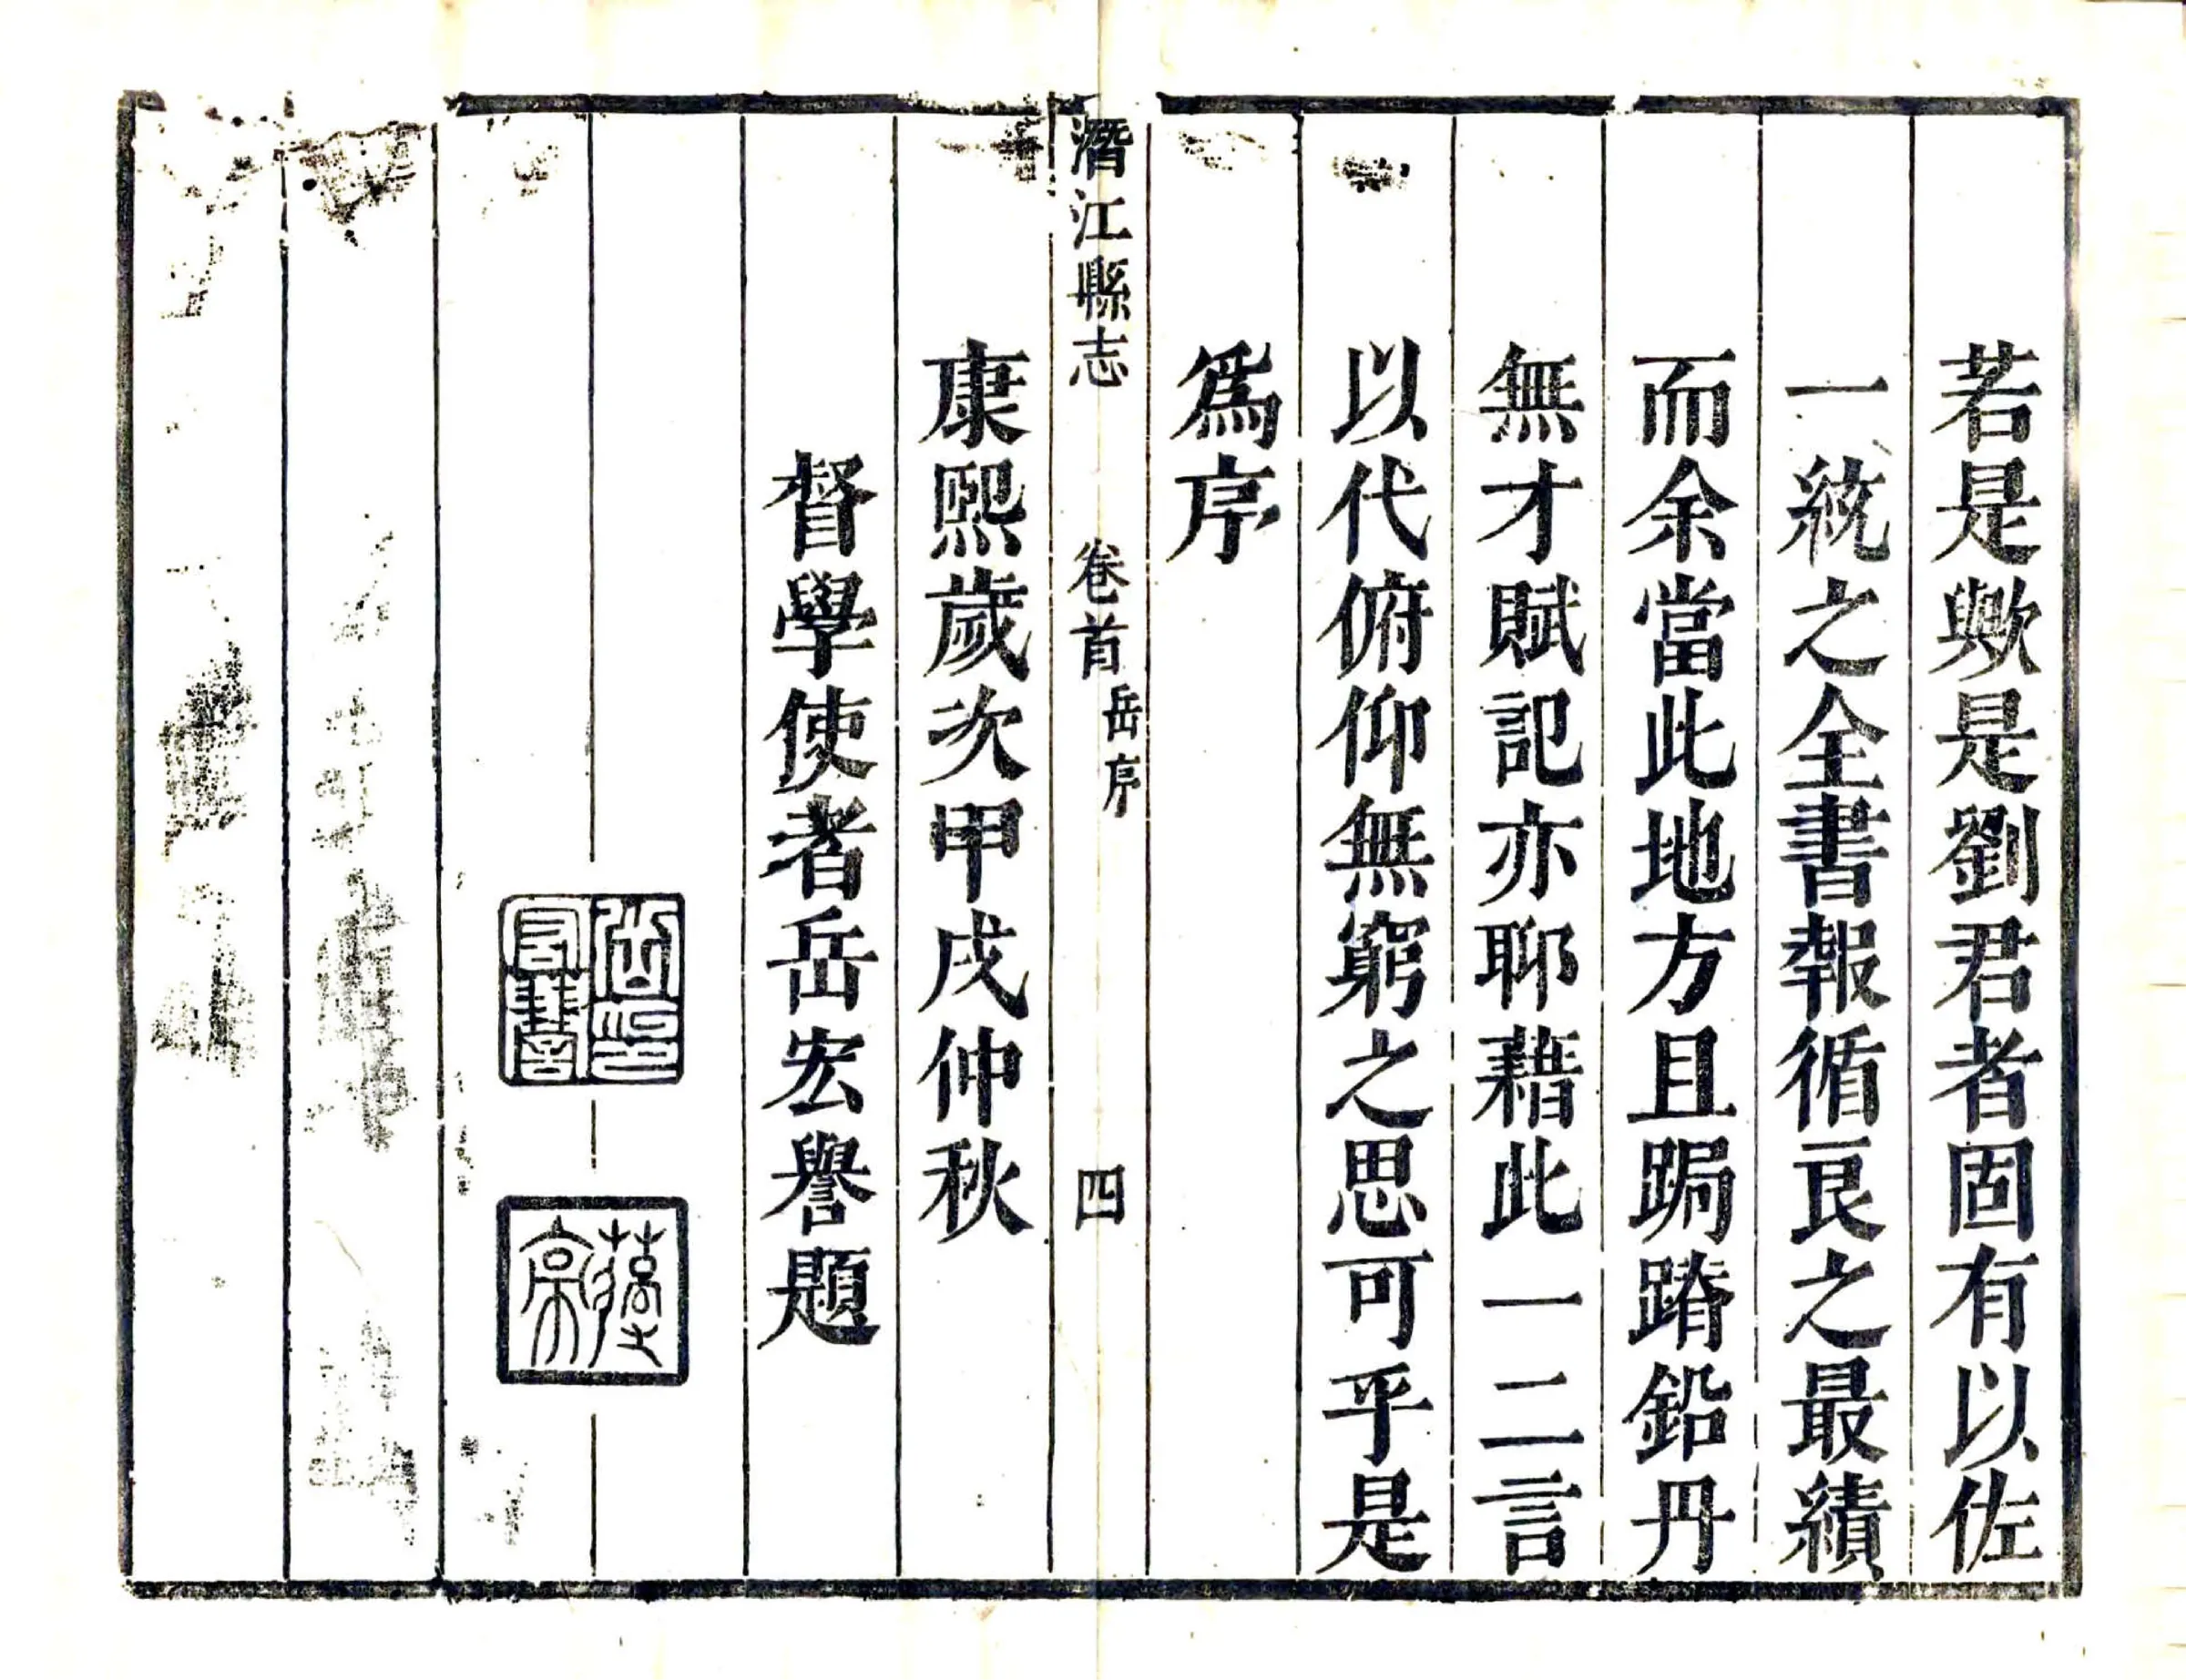 若是歟是劉君者固有以佐
一統之全書報循良之最績
而余當此地方且跼蹐鉛丹
無才賦記亦聊藉此一二言
以代俯仰無窮之思可乎是
爲序
潛江縣志 卷首 岳序 四
康熙歲次甲戌仲秋
督學使者岳宏譽題
岳印宏譽